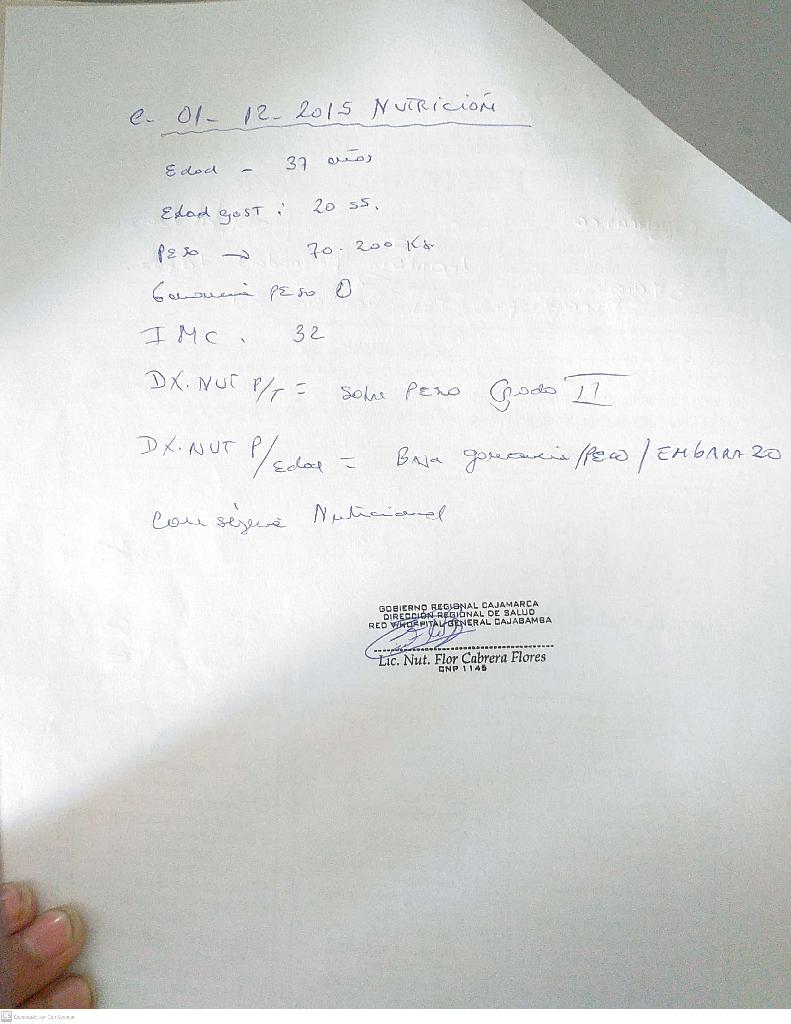 C- 01- 12- 2015 NUTRICION
Edad - 37 años
Edad gest : 20 ss.
Peso → 70.200 Kg
Ganancia peso 0
IMC . 32
DX. NUT P/T = Sobre Peso Grado II
DX. NUT P/Edad = Baja ganancia/Peso/EMBARAZO
Consejería Nutricional
GOBIERNO REGIONAL CAJAMARCA
DIRECCIÓN REGIONAL DE SALUD
RED V/HOSPITAL GENERAL CAJABAMBA
Lic. Nut. Flor Cabrera Flores
CNP 1145